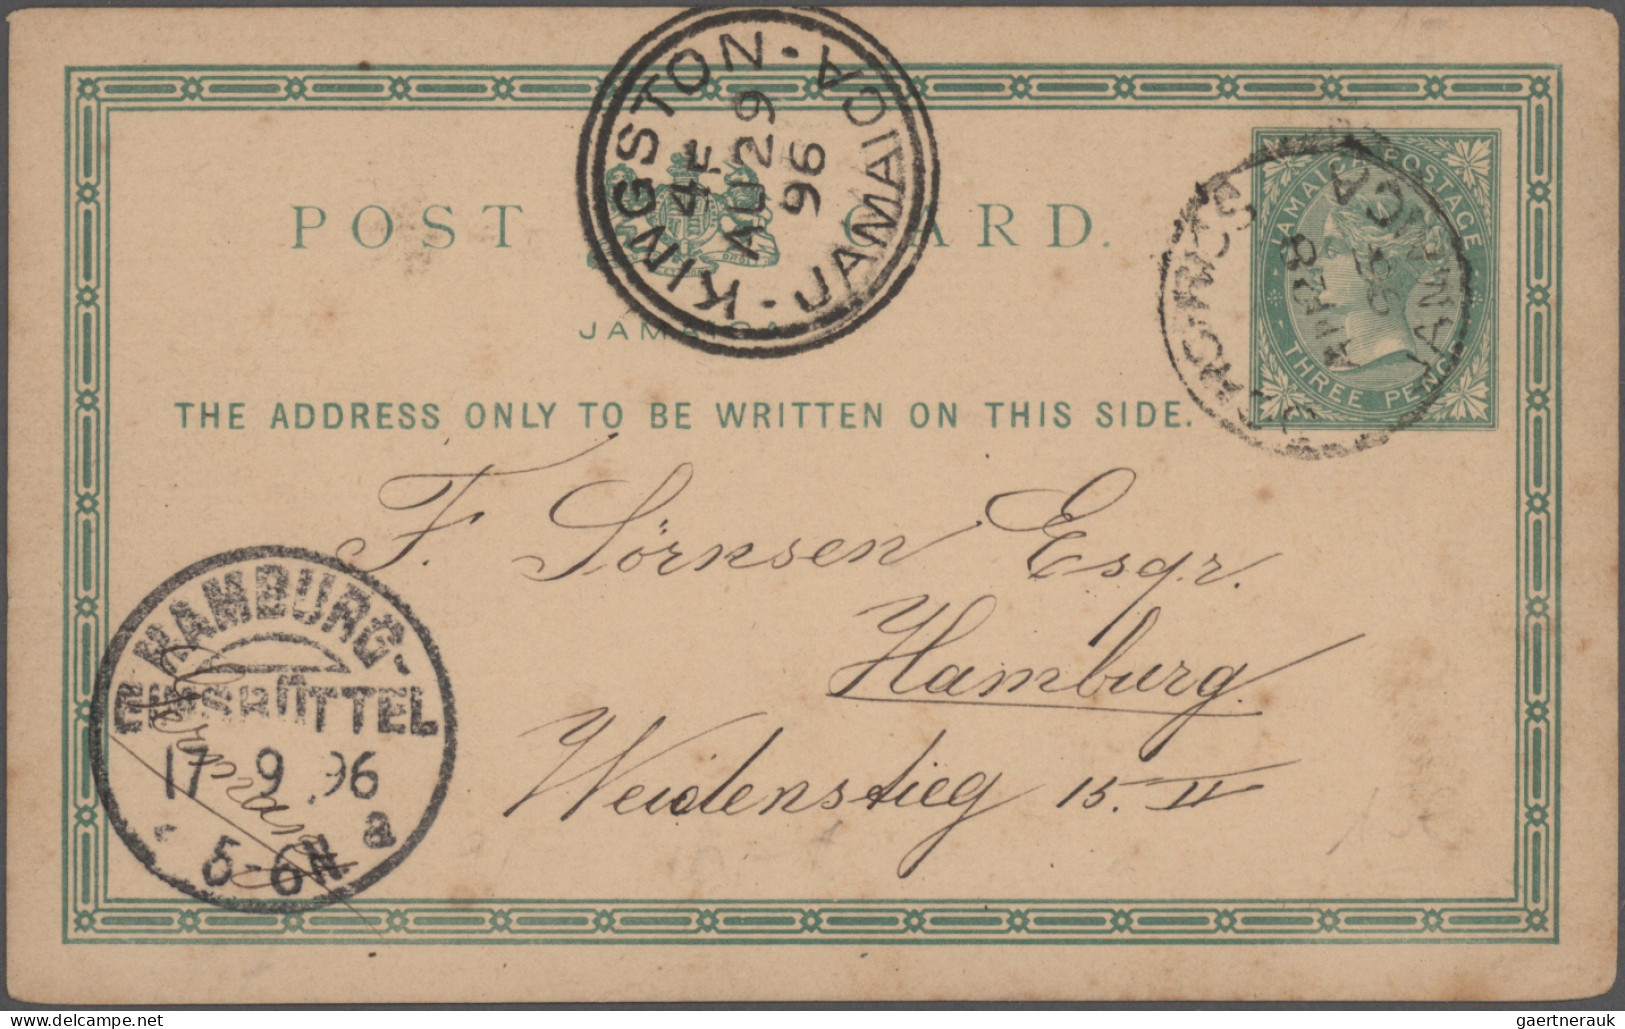 KINGSTON - JAMAICA -
4 P
AU 29
96
POST CARD.
JAMAICA
JAMAICA POSTAGE
THREE PENCE
JAMAICA
THE ADDRESS ONLY TO BE WRITTEN ON THIS SIDE.
F. Sörnsen Esqr.
Hamburg
Weidenstieg 15. II
HAMBURG-
EIMSBÜTTEL
17 9 96
5-6 N
a
www.delcampe.net
gaertnerauk